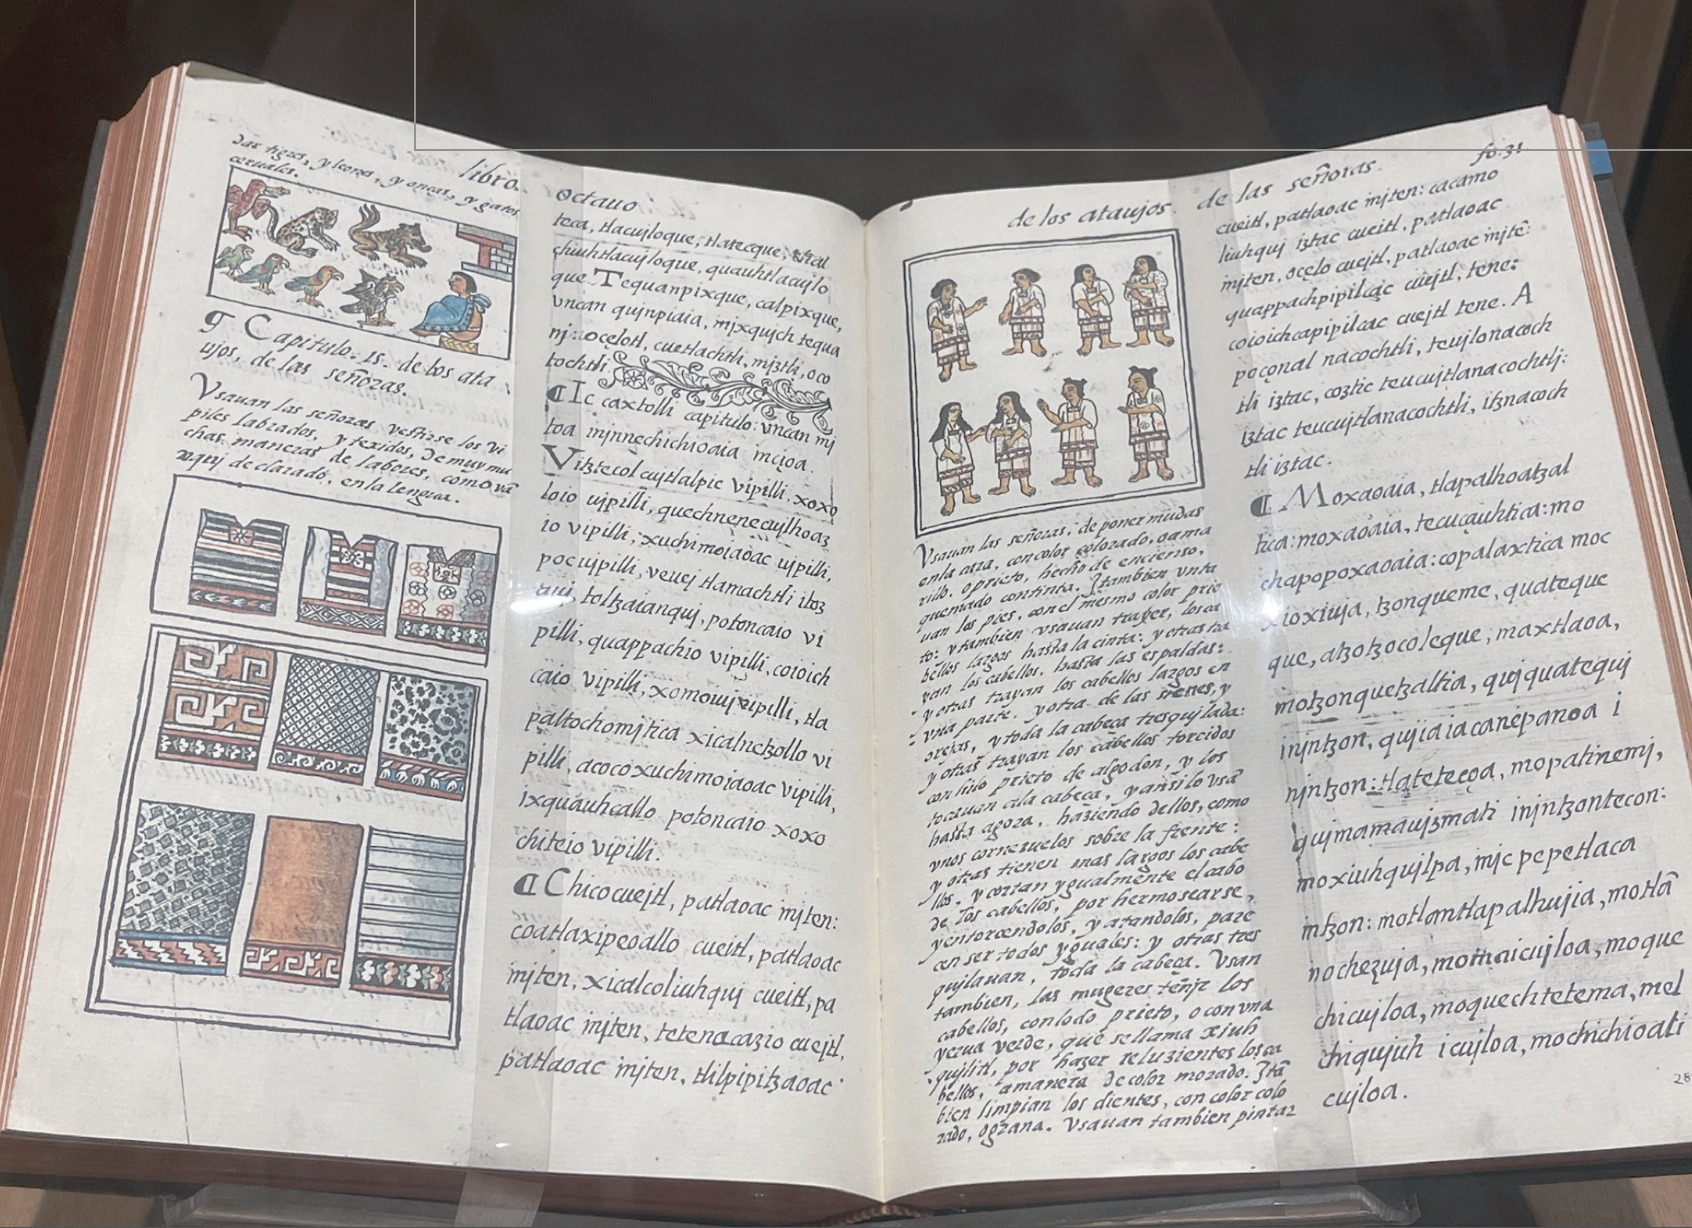 libro
dar tigres, y leones, y onças, y gatos
ceruales.
¶ Capitulo. 15. de los ata
ujos, de las señoras.
Vsauan las señoras vestirse los vi
piles labrados, y texidos, de muy mu
chas, maneras de labores, como va
aquj declarado, en la lengua.
octauo
teca, tlacujloque, tlatecque,
chiuhtlacujloque, quauhtlacujlo
que. Tequanpixque, calpixque,
vncan qujnpiaia, mjxqujch tequa
nj: ocelotl, cuetlachtli, mjztli, oco
tochtli
¶ Ic caxtolli capitulo: vncan mj
toa injnnechichioaia
Vitztecol cujtlalpic vipilli, xoxo
loio vipilli, quechnenecujlhoaz
io vipilli, xuchimoiaoac vipilli,
pocujpilli, veuej tlamachtli
potoncaio vi
pilli, quappachio vipilli, coioich
caio vipilli, xomoiuj vipilli, tla
paltochomjtica xicalnetzollo vi
pilli, acocoxuchimoiaoac vipilli,
ixquauhcallo potoncaio xoxo
chiteio vipilli.
¶ Chicocuejtl, patlaoac injten:
coatlaxipeoallo cueitl, patlaoac
injten, xicalcoliuhquj cueitl, pa
tlaoac injten, tetenacazio cuejtl,
patlaoac injten, tlilpipitzaoac
de los ataujos
Vsauan las señoras, de poner mudas
en la cara, con color colorado, o ama
rillo, o prieto, hecho de encienso,
quemado con tinta. Y tambien vnta
uan los pies, con el mesmo color prie
to: y tambien vsauan traher, los ca
bellos largos hasta la cinta: y otras tra
yan los cabellos, hasta las espaldas:
y otras trayan los cabellos largos en
vna parte, y otra de las sienes, y
orejas, y toda la cabeça tresqujlada:
y otras trayan los cabellos torcidos
con hilo prieto de algodon, y los
tocauan a la cabeça, y ansi lo vsã
hasta agora, haziendo dellos, como
vnos cornezuelos sobre la frente:
y otras tienen mas largos los cabe
llos, y cortan ygualmente el cabo
de los cabellos, por hermosearse,
y entorcendolos, y atandolos, pare
cen ser todos yguales: y otras tres
qujlauan, toda la cabeça. Vsan
tambien, las mugeres teñjr los
cabellos, con lodo prieto, o con vna
yerua verde, que se llama xiuh
qujlitl, por hazer reluzientes los ca
bellos, a manera de color morado. Y tã
bien limpian los dientes, con color colo
rado, o grana. Vsauan tambien pintar
de las señoras.
fo. 31
cueitl, patlaoac injten: cacamo
liuhquj iztac cueitl, patlaoac
injten, ocelo cuejtl, patlaoac injtē:
quappachpipilcac cuejtl, tene:
coioichcapipilcac cuejtl tene. A
poçonal nacochtli, teujlonacoch
tli iztac, coztic teucujtlanacochtlj:
iztac teucujtlanacochtli, itznacoch
tli iztac.
¶ Moxaoaia, tlapalhoatzal
tica: moxaoaia, tecuçauhtica: mo
chapopoxaoaia: copalaxtica moc
xioxiuja, tzonqueme, quateque
que, atzotzocoleque, maxtlaoa,
motzonquetzaltia, qujquatequj
injntzon, qujiaiacanepanoa i
njntzon: tlatetecoa, mopatinemj,
qujmamaujzmati injntzontecon:
moxiuhqujlpa, mjc pepetlaca
intzon: motlamtlapalhujia, motlã
nochezuja, momaicujloa, moque
chicujloa, moquechtetema, mel
chiqujuh icujloa, mochichioati
cujloa.
28